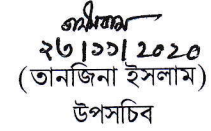 ২৩/১১/২০২০
(তানজিনা ইসলাম)
উপসচিব